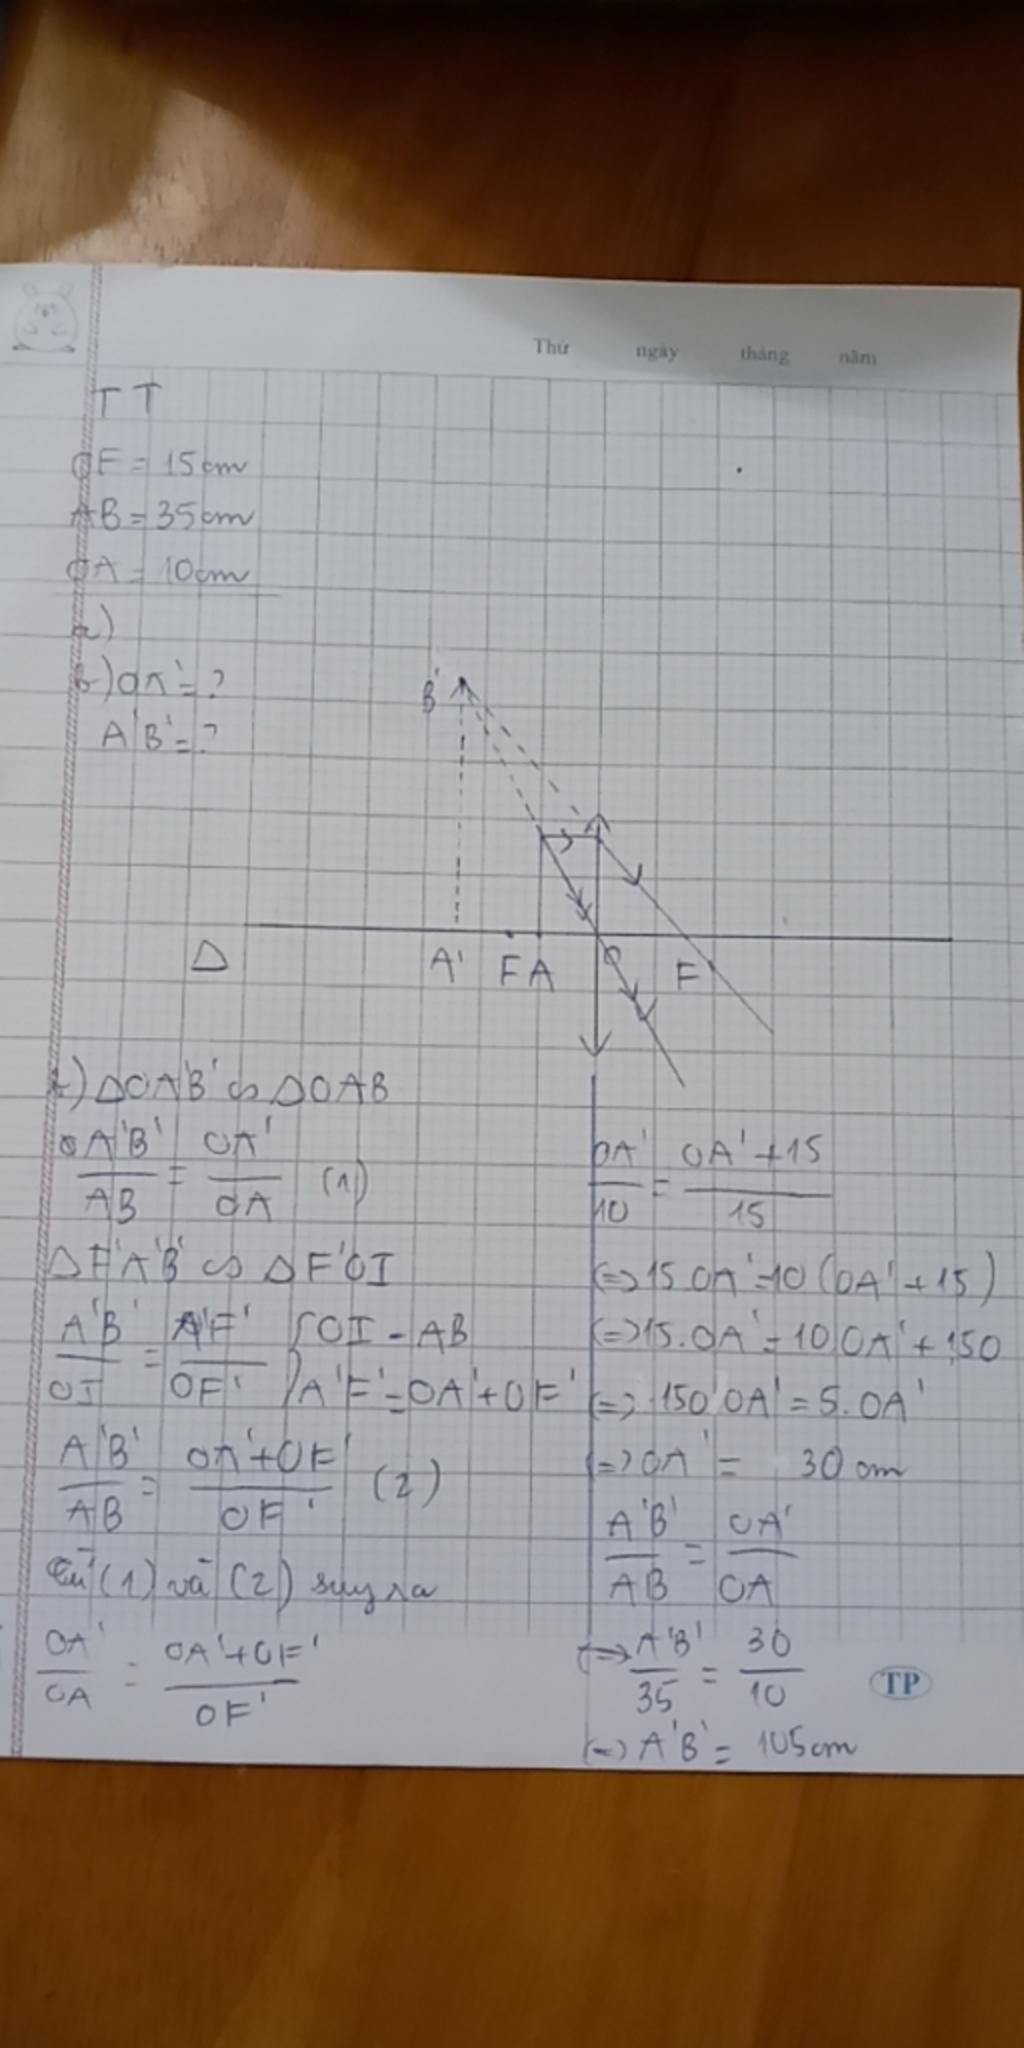 Thứ ngày tháng năm
TT
OF = 15cm
AB = 35cm
OA = 10cm
a)
b) OA' = ?
A'B' = ?
B'
Δ A' F A O F'
b) ΔOA'B' ∽ ΔOAB
A'B'/AB = OA'/OA (1)
ΔF'A'B' ∽ ΔF'OI
A'B'/OI = A'F'/OF' { OI = AB
A'F' = OA' + OF'
A'B'/AB = OA' + OF'/OF' (2)
Từ (1) và (2) suy ra
OA'/OA = OA' + OF'/OF'
OA'/10 = OA' + 15/15
<=> 15.OA' = 10(OA' + 15)
<=> 15.OA' = 10OA' + 150
<=> 150 OA' = 5.OA'
<=> OA' = 30 cm
A'B'/AB = OA'/OA
<=> A'B'/35 = 30/10
<=> A'B' = 105cm
TP